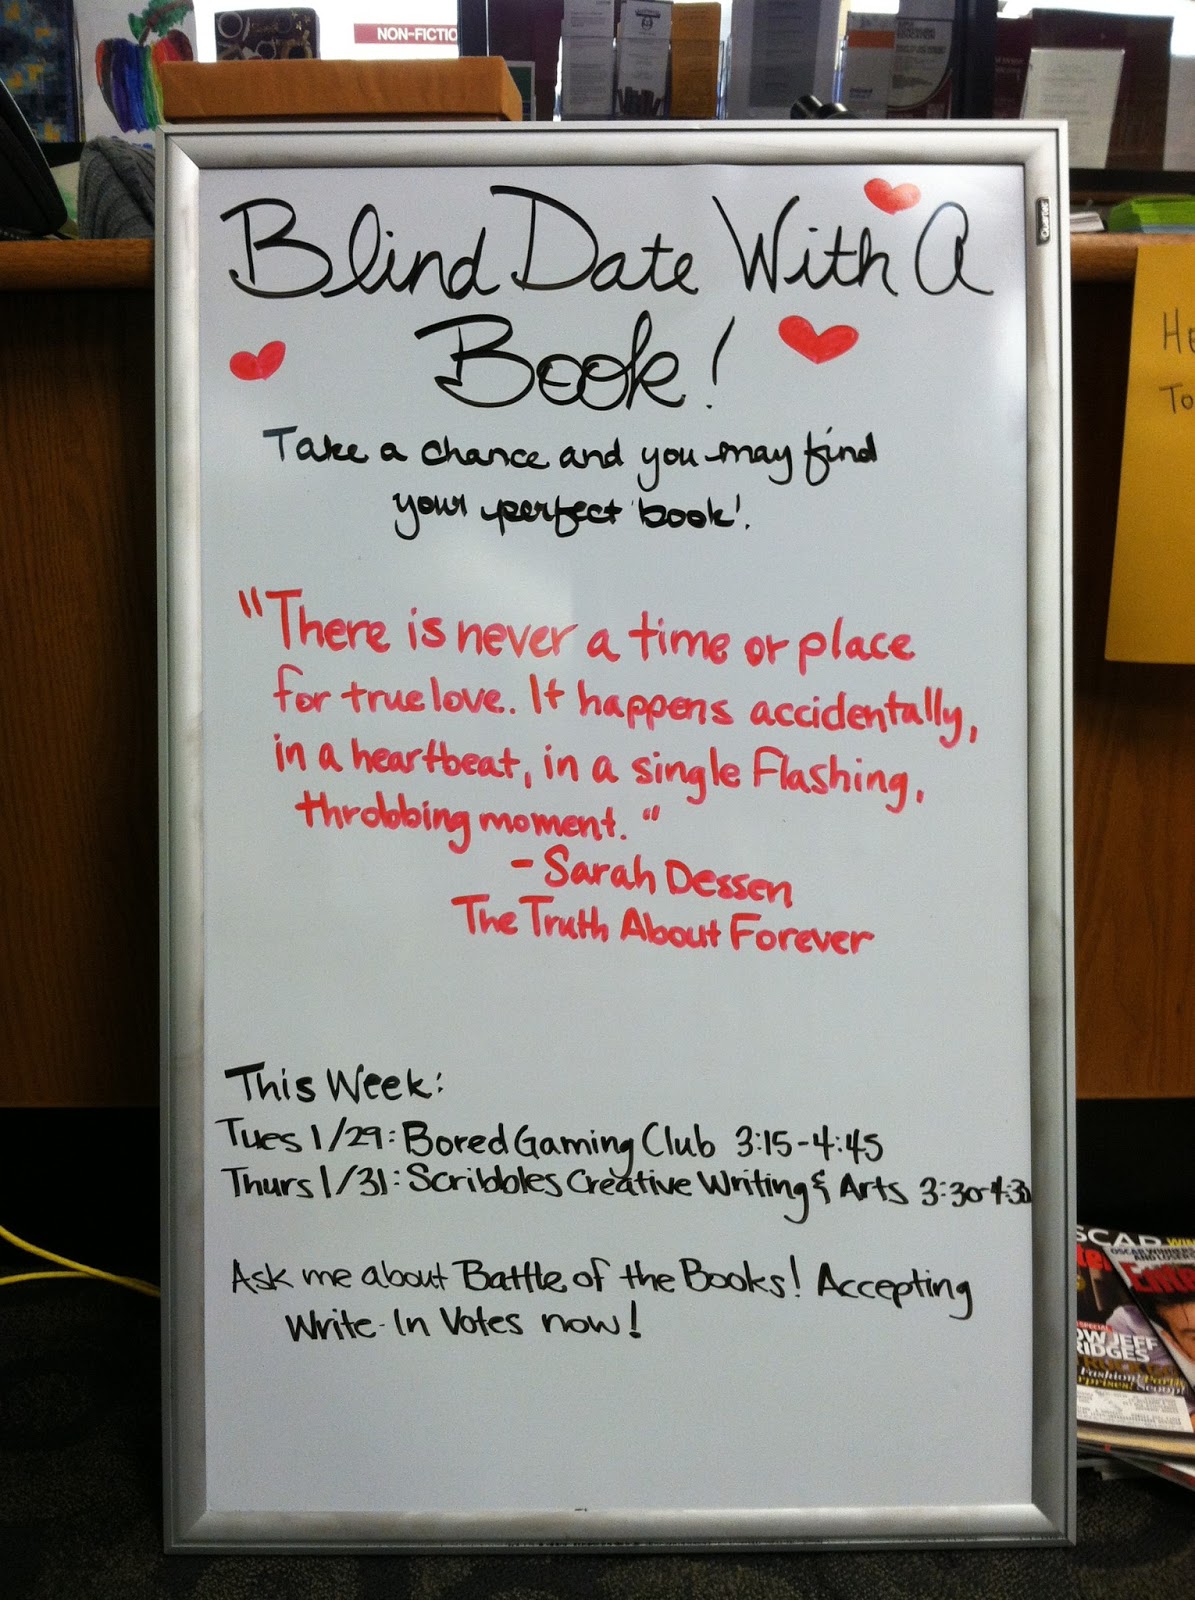 NON-FICTIO
Blind Date With A
Book!
Take a chance and you may find
your perfect book!
"There is never a time or place
for true love. It happens accidentally,
in a heartbeat, in a single flashing,
throbbing moment."
- Sarah Dessen
The Truth About Forever
This Week:
Tues 1/29: Bored Gaming Club 3:15-4:45
Thurs 1/31: Scribbles Creative Writing & Arts 3:30-4:30
Ask me about Battle of the Books! Accepting
Write-In Votes now!
Quartet
He
To
SCAR WIN
OSCAR WINNERS
AND LOSERS
Ente
SPECIAL
OW JEFF
RIDGES
Fashion! Party
rprises! Scoop!